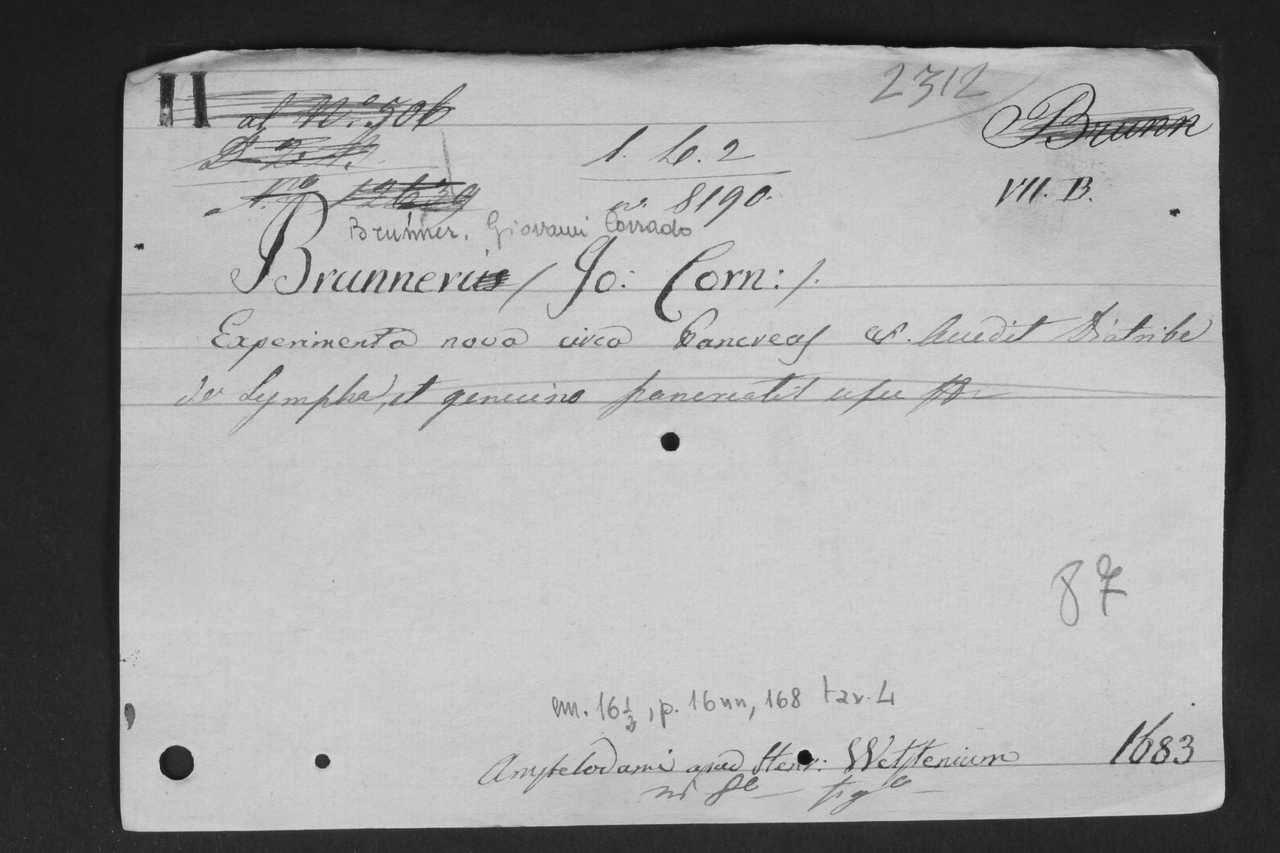 II al N.º 306
2312
Brunn
1. L. 2
VII. B.
N.º 12639
n. 8190.
Brunner, Giovanni Corrado
Brunneri / Jo: Corn: /.
Experimenta nova circa Pancreas &. Accedit Diatribe
de Lympha, et genuino pancreatis usu
87
cm. 16½, p. 16nn, 168 tav. 4
Amstelodami apud Henr: Wetstenium 1683
in 8º fig